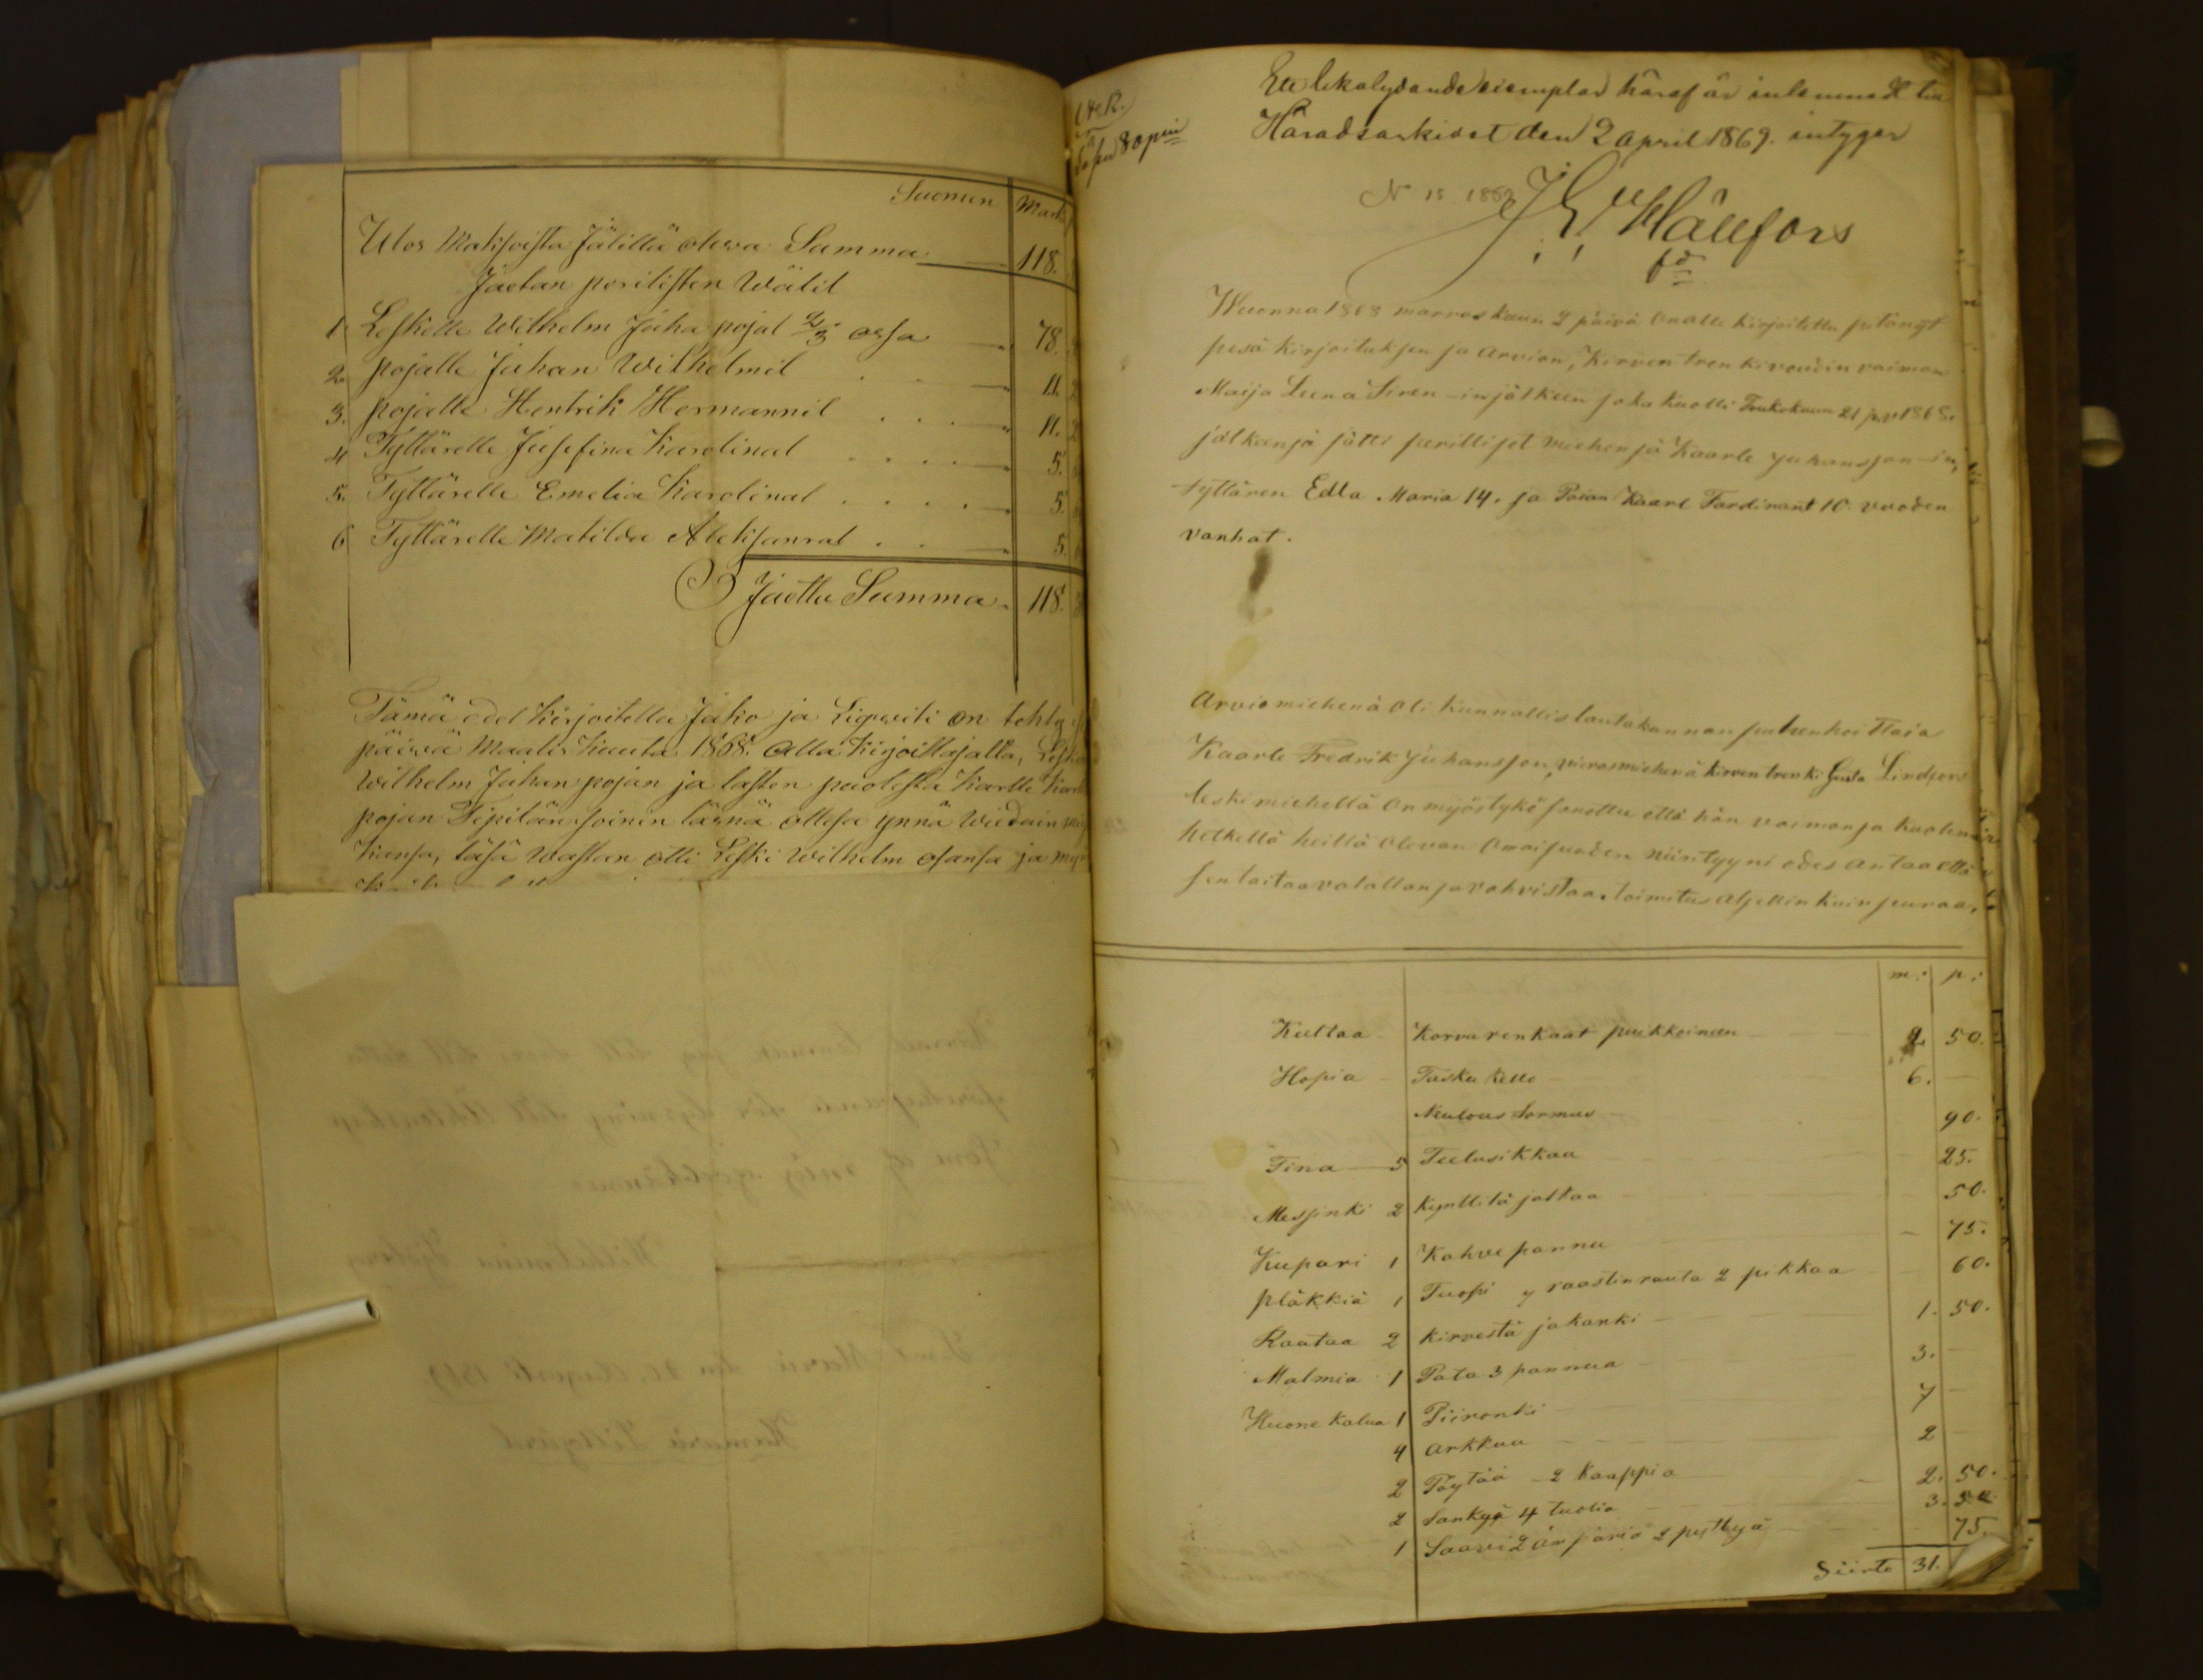 Suomen Mark
Ulos Maksoista Jälillä olewa Summa 118.
Jaetan perilisten Wälil
1 Leskelle Wilhelm Juha pojal 2/3 ossa 78.
2. pojalle Juhan Wilhelmil 11.
3. pojalle Hentrik Hermannil 11.
4 Tyttärelle Jusefina Karolinal 5.
5. Tyttärelle Emelia Karolinal 5.
6 Tyttärelle Matilda Aleksanral 5.
Jaettu Summa 118.
Tämä edel Kirjoitettu Jako ja Ligwiti on tehty
päiwä Maalis Kuuta 1868. Alla Kirjoittajalta,
Wilhelm Juhan pojan ja lasten puolesta Kaarlle
pojan Tipilän Soinin läsnä ollesa ynnä
Kansa, täsä Wastan otti Leski Wilhelm osansa ja
80 pni
Ett likalydande exemplar häraf är inlemnadt till
Häradsarkivet den 2 April 1869. intygar
N 15 1869
J. E. Hällfors
Wuonna 1868 marras kuun 2 päivä On alle kirjoitettu pitänyt
pesä kirjoituksen ja arvion, Kirven trenki voudin vaimon
Maija Leena Siren-in jälkeen joka kuolli Toukokuun 21 p:v 1868.
jälkeensä jätti perilliset miehensä Kaarle Juhansson-in,
tyttären Edla Maria 14. ja Poian Kaarl Fardinant 10 vuoden
vanhat.
Arvio miehenä oli Kunnallislautakannan puhenhoittaia
Kaarle Fredrik Juhansson, vierasmiehenä kirven trenki Gusta Lindfors
leski miehellä on myös tykö sanottu että hän vaimonsa kuoleman
hetkellä heillä olevan Omaisuuden niin tyyni edes antaa että
sen taitaa valallansa vahvistaa. toimitus aljettin kuin seuraa.
m: p:
Kultaa Korvarenkaat puikkoineen 2 50.
Hopia Tasku kello 6.
Neulous Sormus 90.
Tina 5 Teelusikkaa 25.
Messinki 2 Kynttilä jalkaa 50.
Kupari 1 Kahve pannu 75.
pläkkiä 1 Tuopi y raastinrauta 2 pikkaa 60.
Rautaa 2 kirvestä ja kanki 1. 50.
Malmia 1 Pata 3 pannua 3.
Huone kalua 1 Piironki 7
4 arkkua 2
2 Pöytää 2 kaappia 2. 50.
2 Sänkyä 4 tuolia 3. 50
1 Saavi 2 ämpäriä 2 pyttyä 75.
Siirto 31.